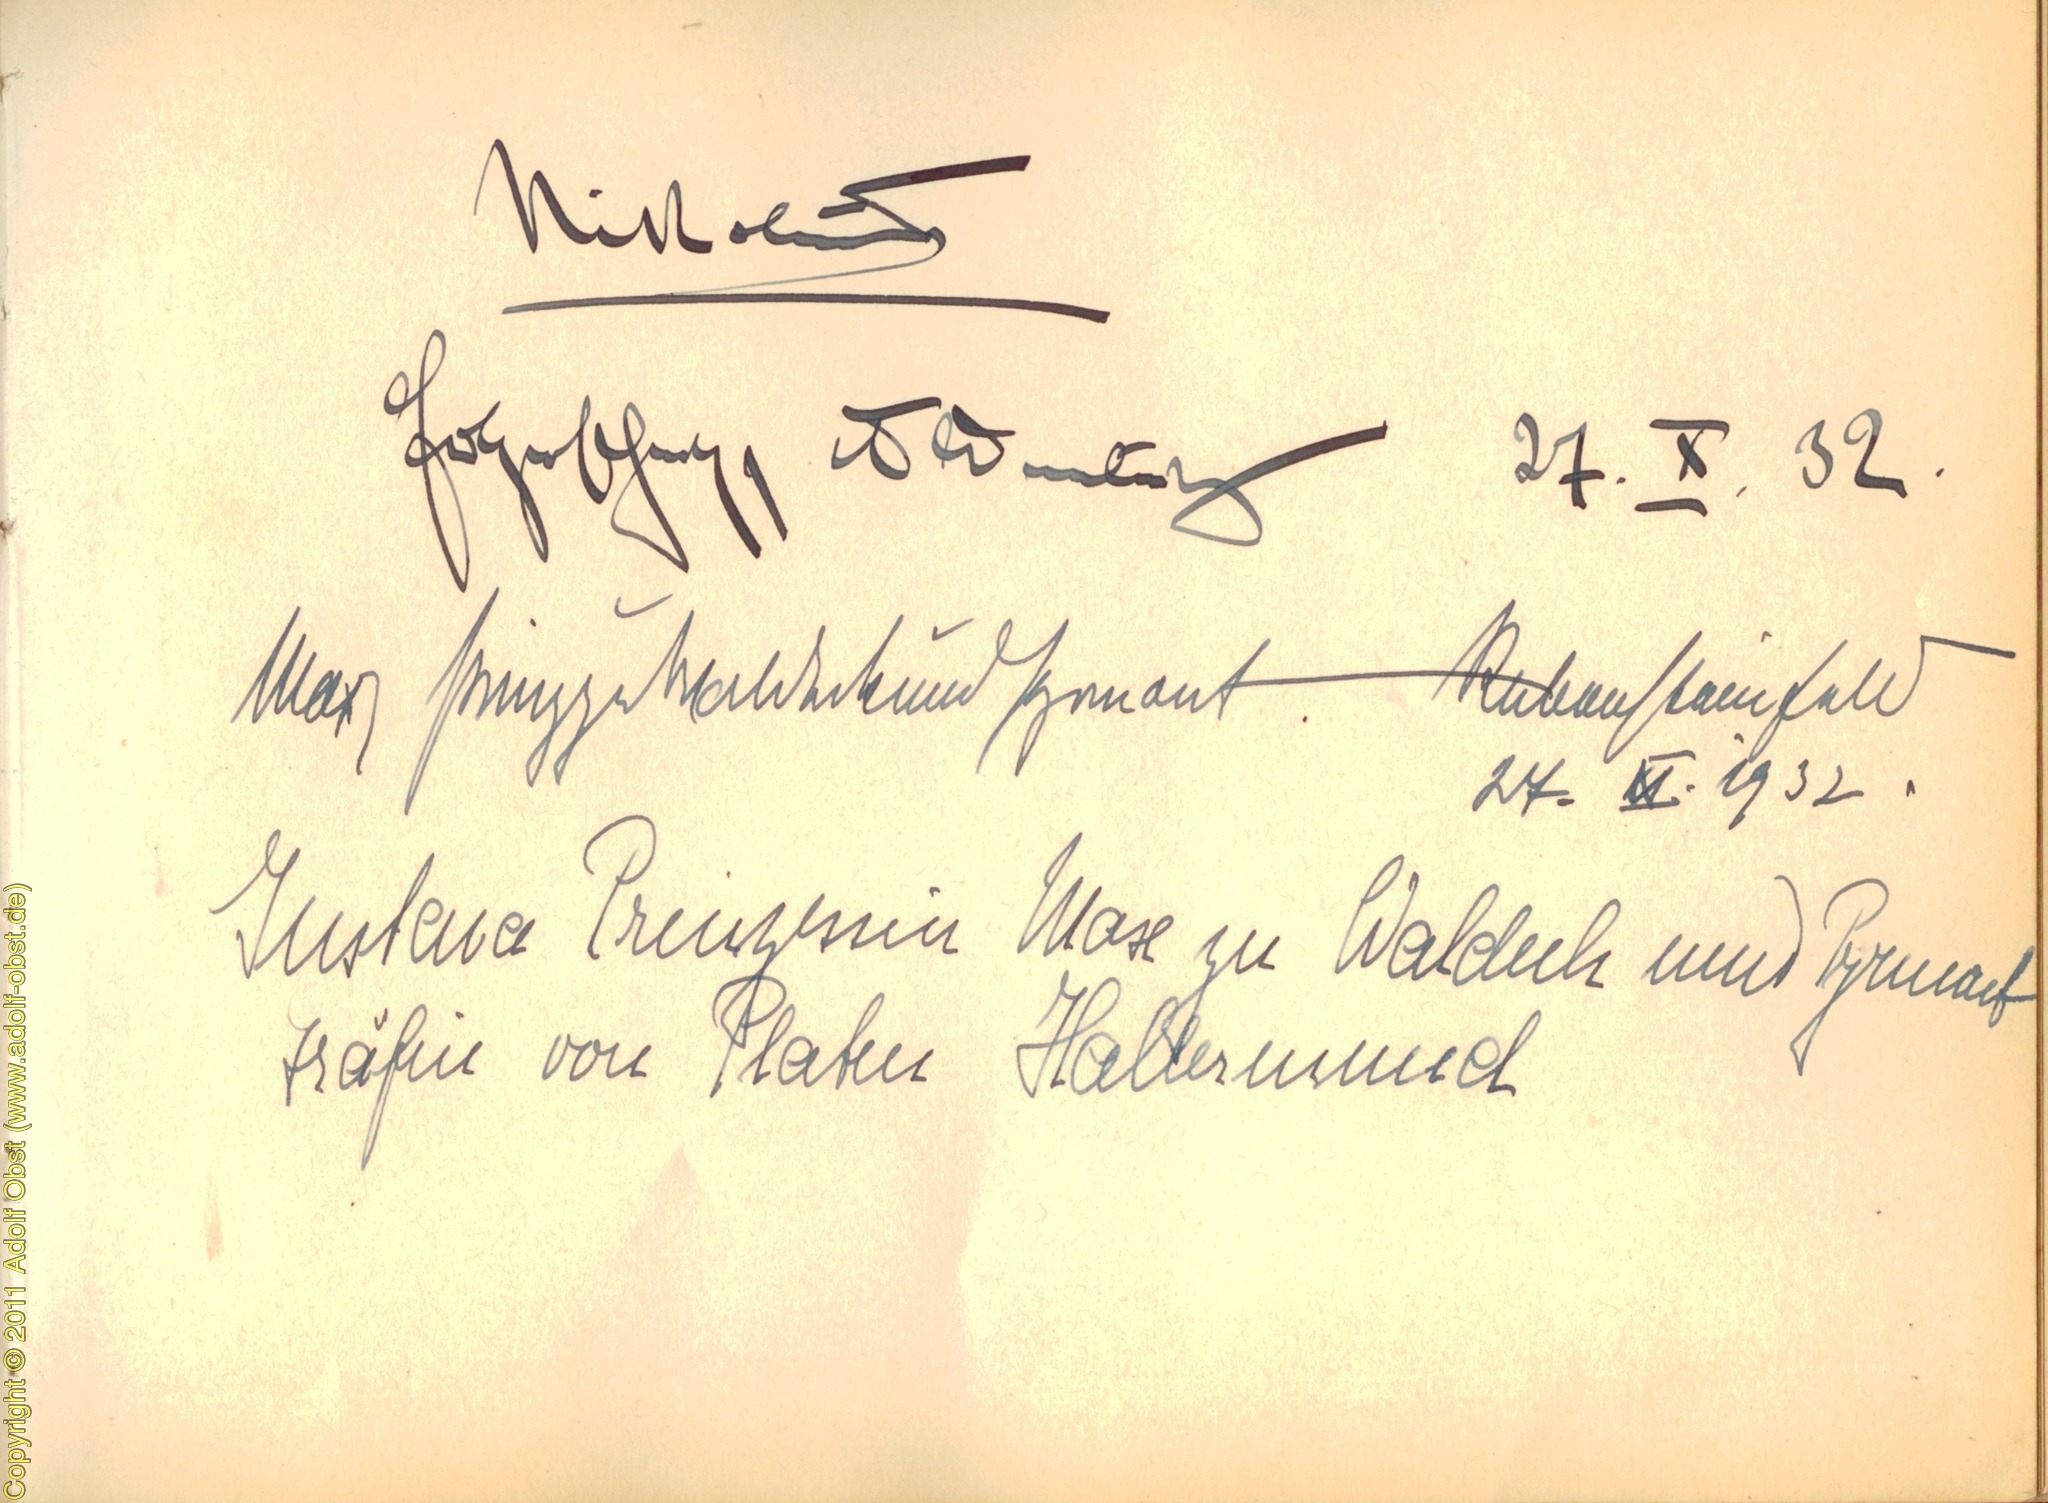 Nikolaus
Erbgroßherzog v Oldenburg 27. X. 32.
Max Prinz zu Waldeck und Pyrmont. Rabensteinfeld
27. X. 1932.
Gustava Prinzessin Max zu Waldeck und Pyrmont
Gräfin von Platen Hallermund
Copyright © 2011 Adolf Obst (www.adolf-obst.de)